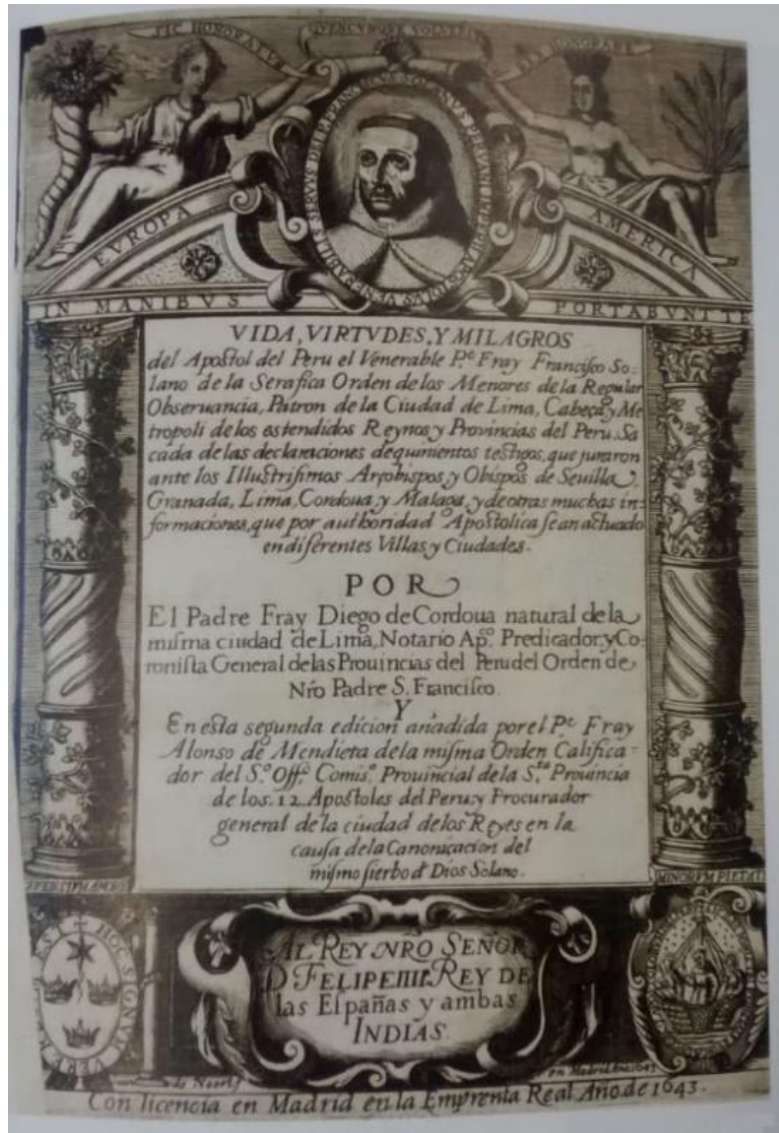 SIC HONORATVR
QVEMCVMQVE VOLVERIT
REX HONORARE
VENERABILIS SERVVS DEI FR FRANCISCVS SOLANVS PERVANI REGNI APOSTOLVS
EVROPA
AMERICA
IN MANIBVS
PORTABVNT TE
VIDA, VIRTVDES, Y MILAGROS
del Apostol del Peru el Venerable P.e Fray Francisco So-
lano de la Serafica Orden de los Menores de la Regular
Obseruancia, Patron de la Ciudad de Lima, Cabeça y Me
tropoli de los estendidos Reynos y Prouincias del Peru. Sa
cada de las declaraciones de quinientos testigos, que juraron
ante los Illustrisimos Arçobispos, y Obispos de Seuilla,
Granada, Lima, Cordoua, y Malaga, y de otras muchas in-
formaciones, que por authoridad Apostolica se an actuado
en diferentes Villas y Ciudades.
POR
El Padre Fray Diego de Cordoua natural de la
misma ciudad de Lima, Notario Ap.co Predicador, y Co-
ronista General de las Prouincias del Peru del Orden de
Nro Padre S. Francisco.
Y
En esta segunda edicion añadida por el P.e Fray
Alonso de Mendieta de la misma Orden Califica-
dor del S.o Off.o Comis.o Prouincial de la S.ta Prouincia
de los .12. Apostoles del Peru, y Procurador
general de la ciudad de los Reyes en la
causa de la Canoniçacion del
mismo sierbo d Dios Solano.
MINORVM PIETATI
HOC SIGNVM VERE
AL REY NRO SEÑOR
D FELIPE IIII REY DE
las Españas y ambas
INDIAS.
de Noort f
en Madrid
Con licencia en Madrid en la Emprenta Real Año de 1643.